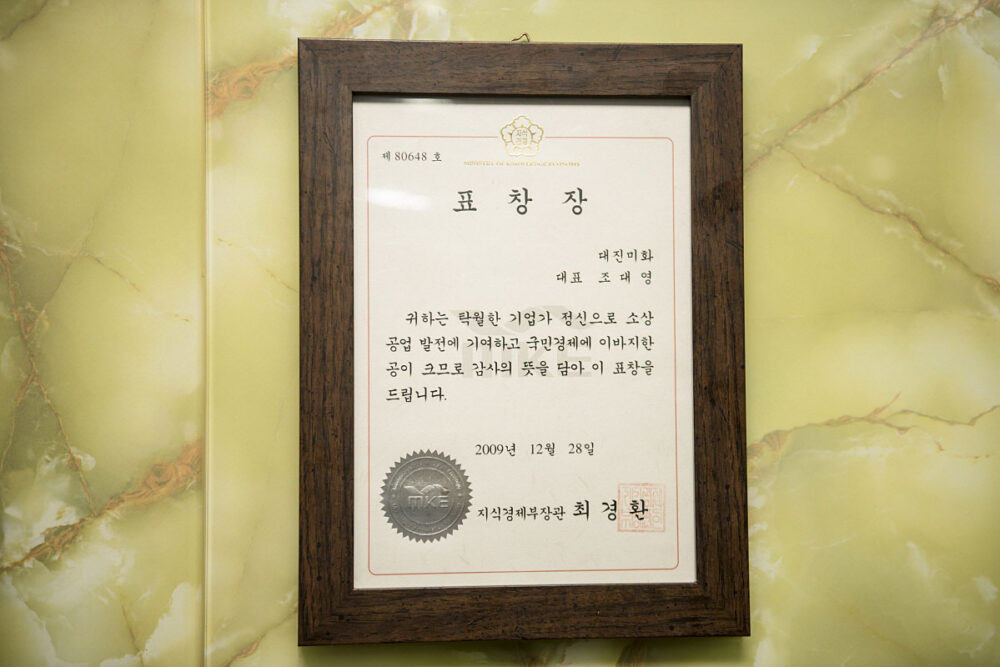 지식
경제
MINISTRY OF KNOWLEDGE ECONOMY
제 80648 호
표 창 장
대진미화
대표 조 대 영
귀하는 탁월한 기업가 정신으로 소상
공업 발전에 기여하고 국민경제에 이바지한
공이 크므로 감사의 뜻을 담아 이 표창을
드립니다.
MKE
2009년 12월 28일
MKE
지식경제부장관 최 경 환